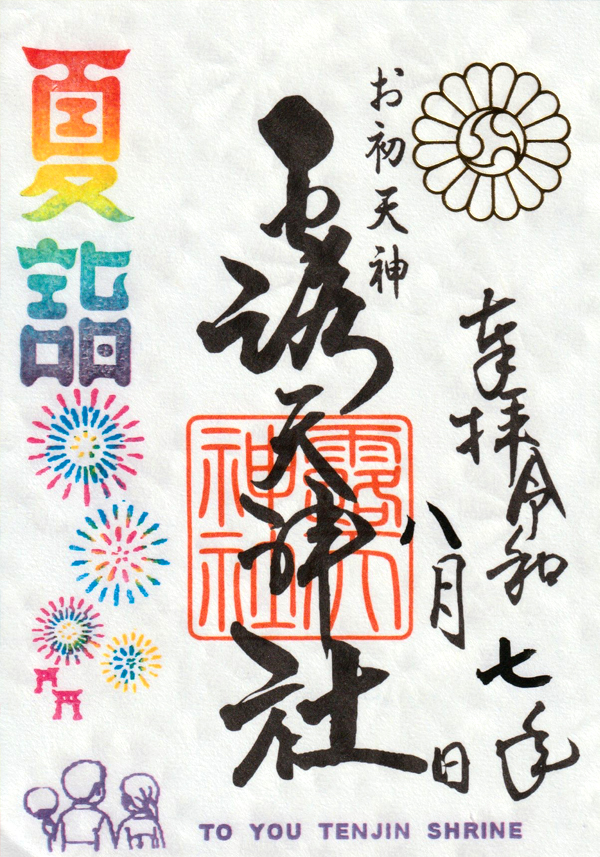 奉拝 令和七年
八月 日
お初天神
露天神社
露天
神社
夏詣
TO YOU TENJIN SHRINE